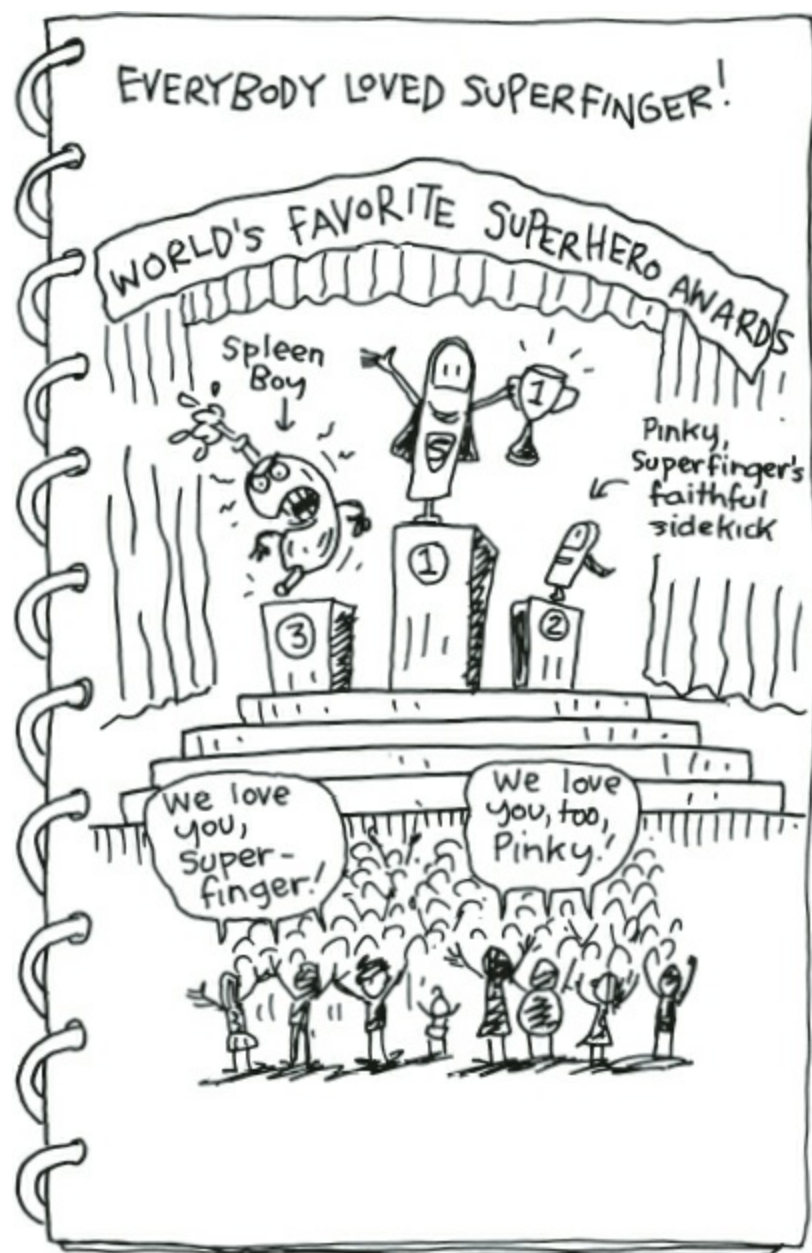 EVERYBODY LOVED SUPERFINGER!
WORLD'S FAVORITE SUPERHERO AWARDS
Spleen
Boy
1
S
Pinky,
Superfinger's
faithful
sidekick
1
3
2
We love
you,
Super-
finger!
We love
you, too,
Pinky!